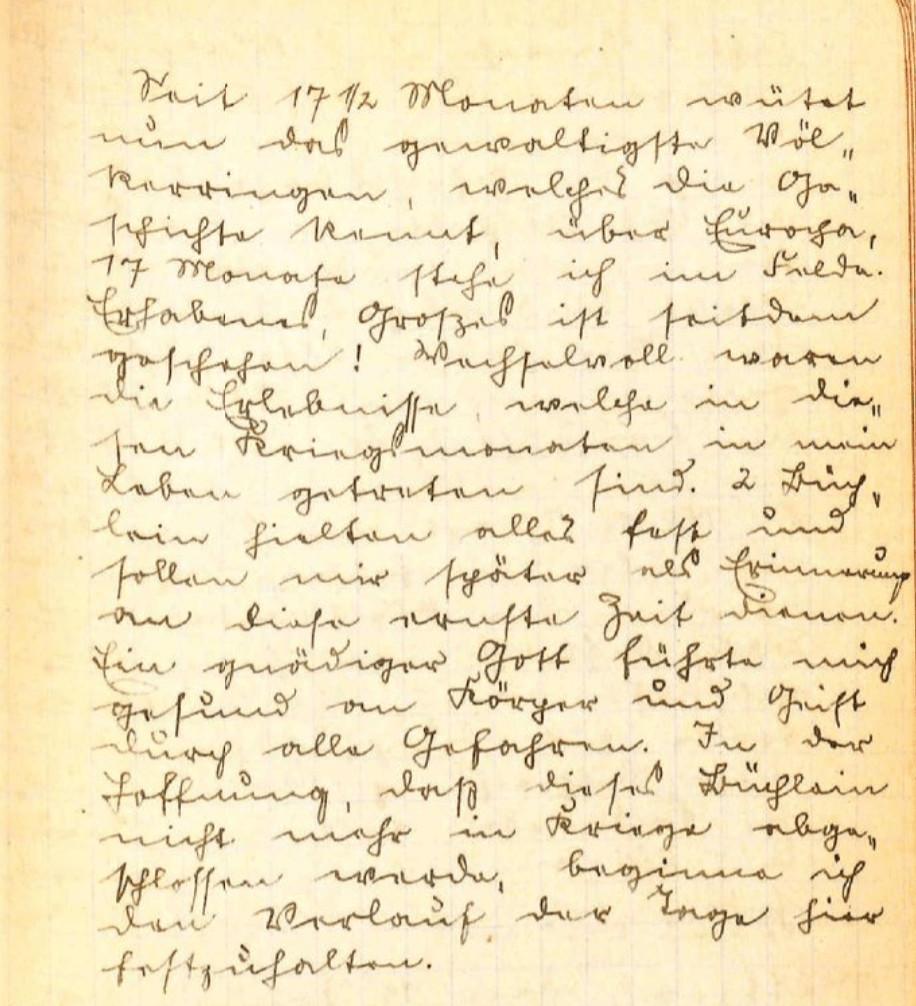 Seit 17 1/2 Monaten wütet
nun das gewaltigste Völ„
kerringen, welches die Ge„
schichte kennt, über Europa,
17 Monate stehe ich im Felde.
Erhabenes, Großes ist seitdem
geschehen! Wechselvoll waren
die Erlebnisse, welche in die„
sen Kriegsmonaten in mein
Leben getreten sind. 2 Büch„
lein hielten alles fest und
sollen mir später als Erinnerung
an diese ernste Zeit dienen.
Ein gnädiger Gott führte mich
gesund an Körper und Geist
durch alle Gefahren. In der
Hoffnung, daß dieses Büchlein
nicht mehr in Kriege abge„
schlossen werde, beginne ich
den Verlauf der Tage hier
festzuhalten.